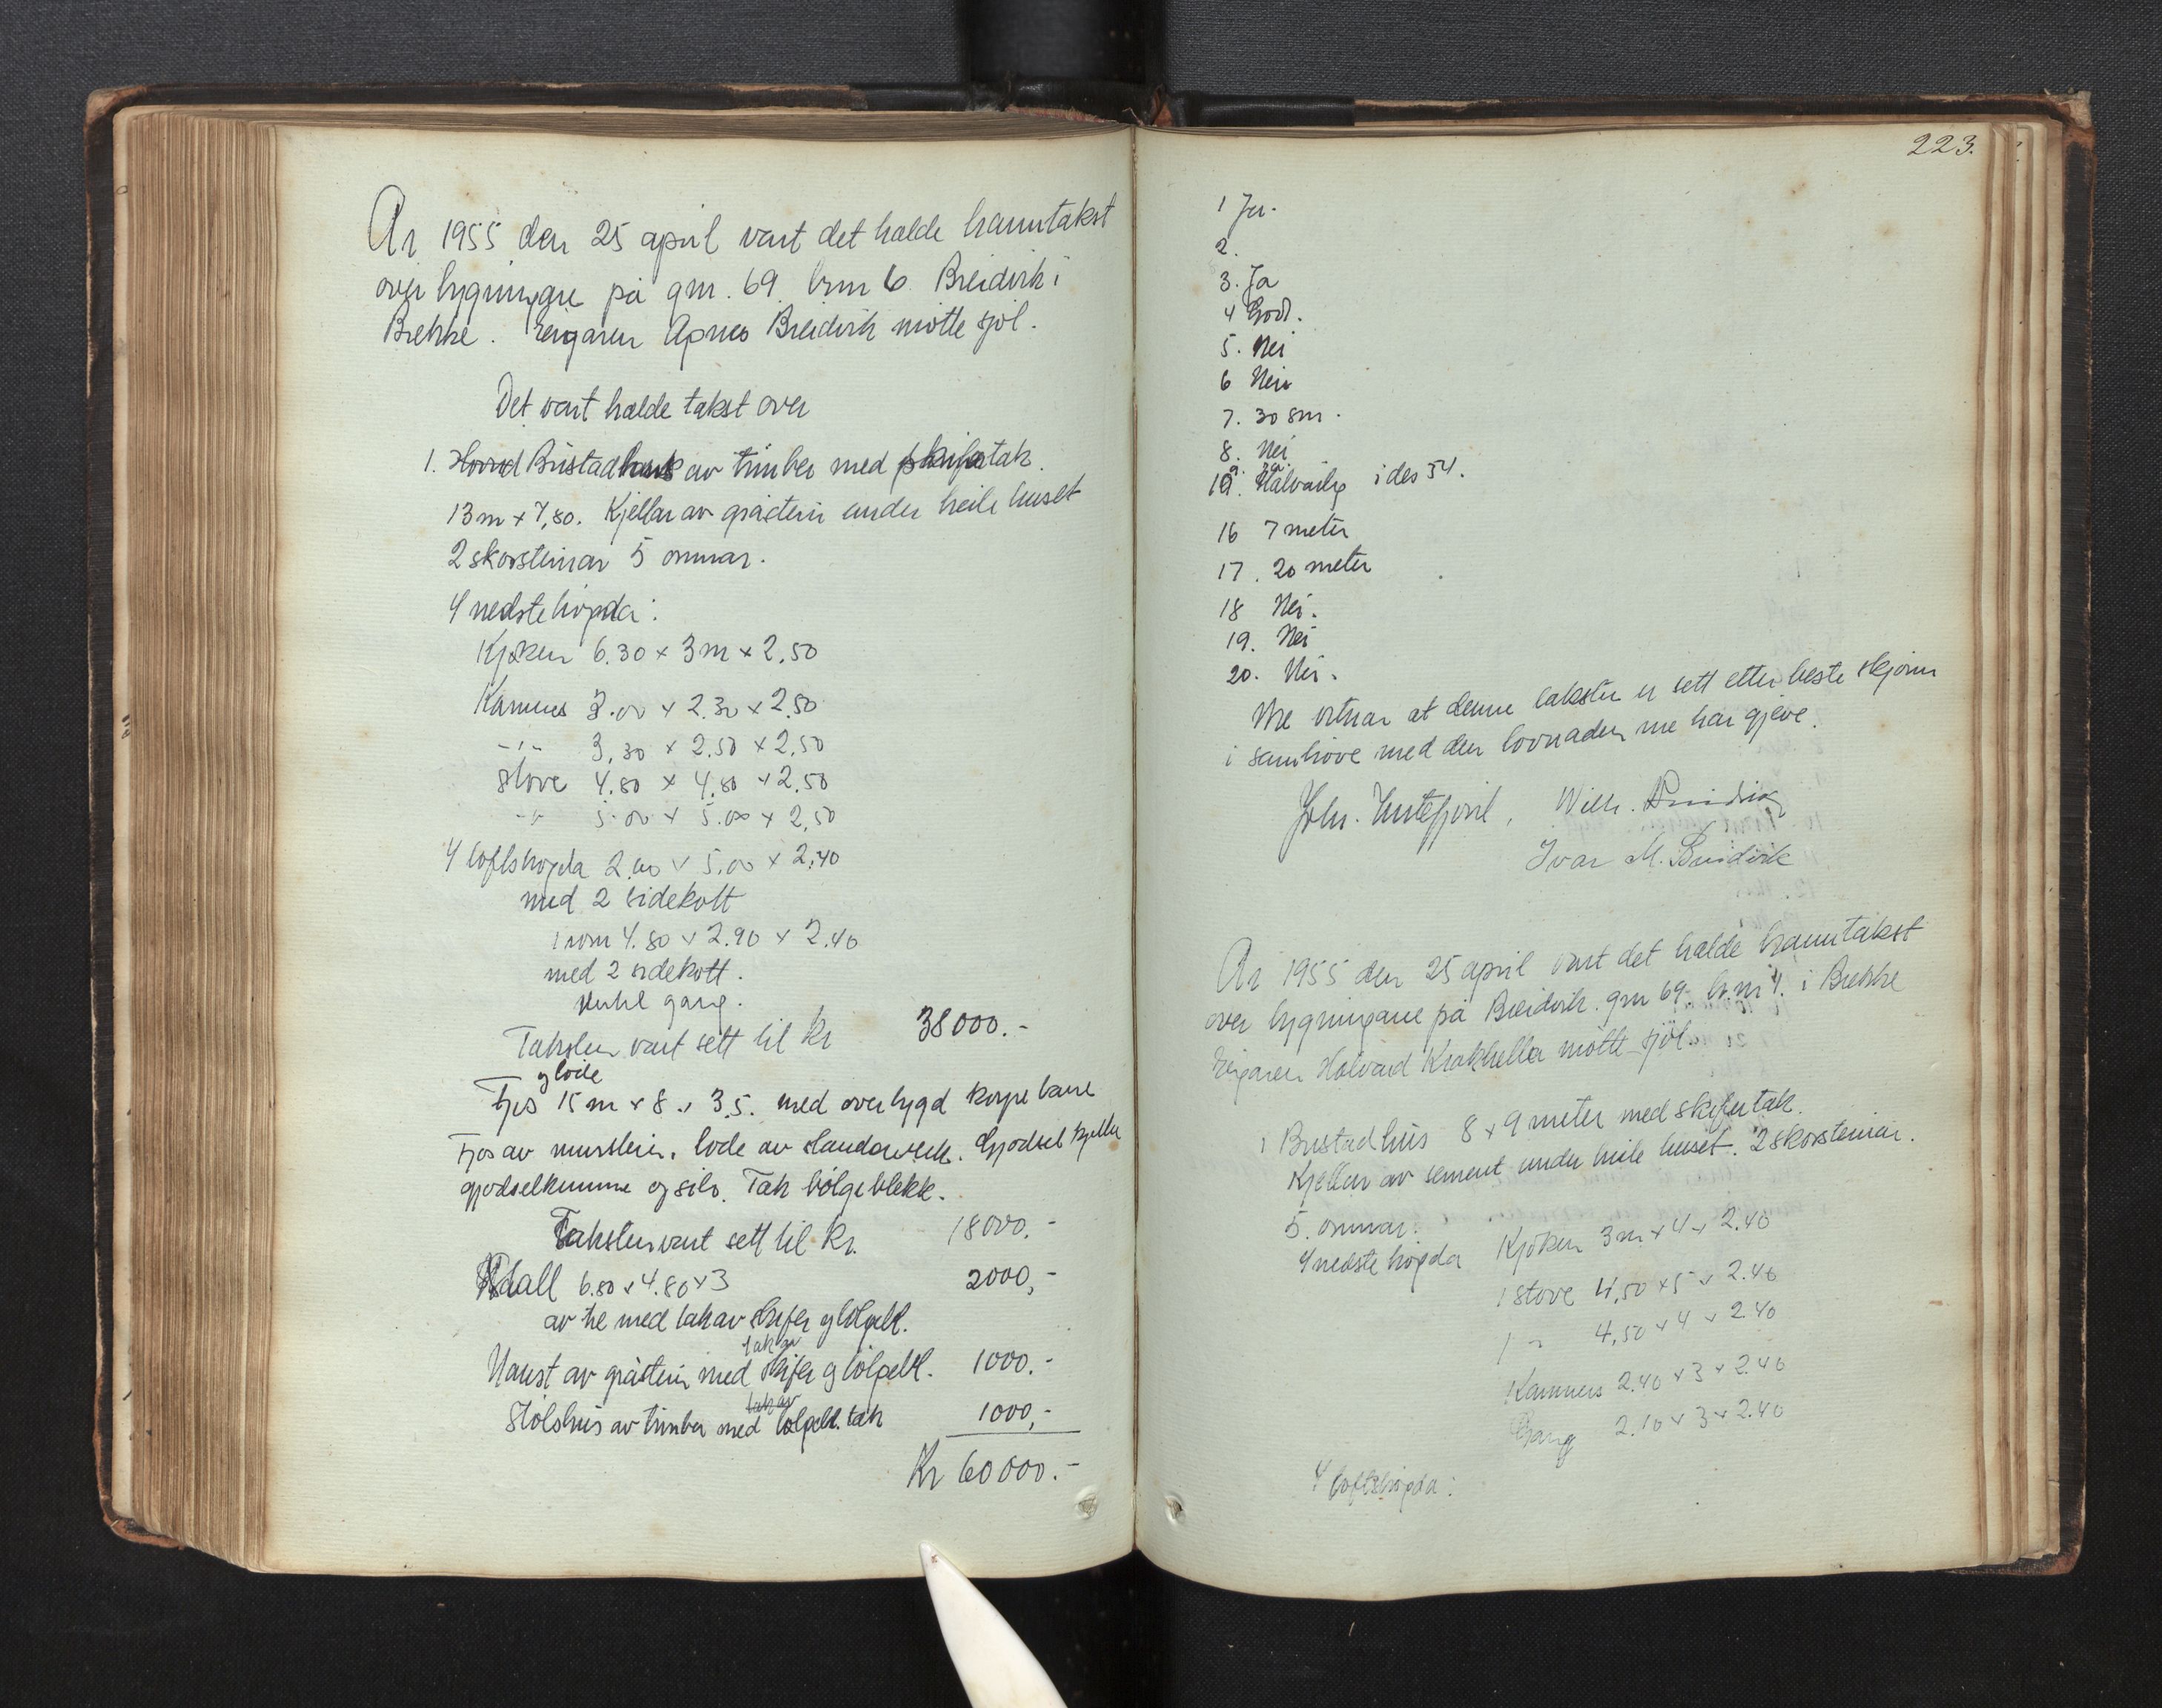 År 1955 den 25 april vart det halde branntakst
over bygningane på gnr. 69 brnr 6 Breidvik i
Brekke. Eigaren Agnes Breidvik møtte sjøl.
Det vart halde takst over
1. Bustadhus av timber med skifertak.
13 m x 7,80. Kjellar av gråstein under heile huset
2 skorsteinar 5 omnar.
I nedstehøgda:
Kjøken 6.30 x 3 m x 2,50
Kammes 3.00 x 2.30 x 2.50
-"- 3,30 x 2.50 x 2,50
Stove 4.80 x 4,80 x 2,50
-"- 5.00 x 5.00 x 2,50
I loftshøgda 2.00 x 5,00 x 2,40
med 2 sidekott
1 rom 4.80 x 2.90 x 2.40
med 2 sidekott.
gang.
Taksten vart sett til kr 38000.-
og løde
Fjøs 15 m x 8 x 3,5. med overbygd køyrebane
Fjøs av murstein. Løde av standarverk. Gjødselkjellar
gjødselkumme og silo. Tak bølgeblekk.
Taksten vart sett til kr. 18000.-
Kvall 6.80 x 4.80 x 3 2000,-
av tre med tak av skifer og bølgebl.
tak av
Naust av gråstein med skifer og bølgebl. 1000.-
tak av
Stølshus av timber med bølgebl. tak 1000,-
Kr 60000.-
223.
1 Ja.
2.
3. Ja
4 God.
5. Nei
6 Nei
7. 30 sm.
8. Nei
9. Ja.
10. Halvårlig i des 54.
16 7 meter
17. 20 meter
18 Nei.
19. Nei
20. Nei.
Me vitnar at denne taksten er sett etter beste skjønn
i samhøve med den lovnaden me har gjeve.
Joh. Instefjord, Wilh. Breidvik
Ivar M. Breidvik
År 1955 den 25 april vart det halde branntakst
over bygningane på Breidvik gnr 69. br.nr 4. i Brekke
Eigaren Halvard Kråkhella møtte sjøl.
1 Bustadhus 8 x 9 meter med skifertak.
Kjellar av sement under heile huset. 2 skorsteinar.
5. omnar.
I nedste høgda Kjøken 3 m x 4 x 2.40
1 stove 4,50 x 5 x 2.40
1 " 4,50 x 4 x 2.40
Kammers 2.40 x 3 x 2.40
Gang 2.10 x 3 x 2.40
I loftshøgda: